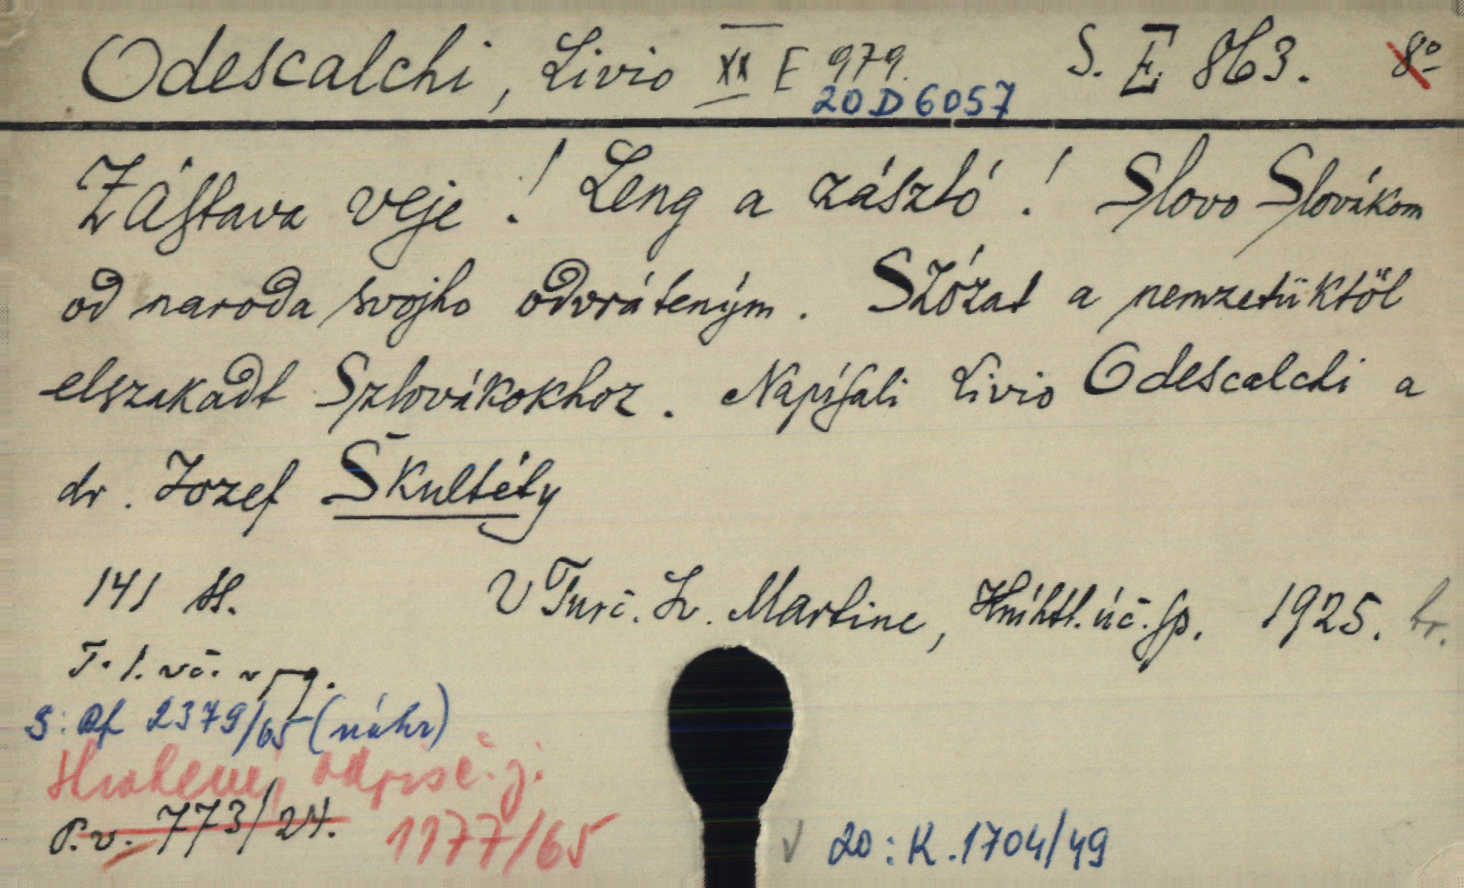 Odescalchi, Livio XX E 979. S. E 863. 8º
20 D 6057
Zástava veje! Leng a zászló! Slovo Slovákom
od naroda svojho odvráteným. Szózat a nemzetüktöl
elszakadt Szlovákokhoz. Napísali Livio Odescalchi a
dr. Jozef Škultéty
141 st. V Turč. Sv. Martine, Kníhtl. úč. sp. 1925. br.
T. l. vč.
S: Af 2379/65 (náhr)
Ztratené, odpis č. j.
P.v. 773/24. 1177/65
20: K. 1704/49